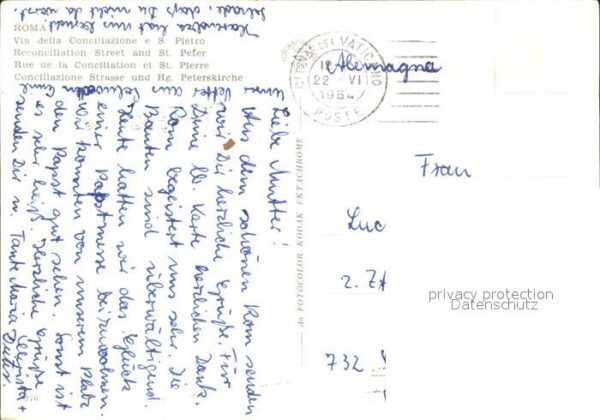 ROMA
Via della Conciliazione e S. Pietro
Reconciliation Street and St. Peter
Rue de la Conciliation et St. Pierre
Conciliazione Strasse und Hg. Peterskirche
CITTÀ DEL VATICANO
22-VII
1964
POSTE
Alemagna
Liebe Mutter!
Aus dem schönen Rom senden
wir Dir herzliche Grüße. Für
Deine lb. Karte herzlichen Dank.
Rom begeistert uns sehr. Die
Bauten sind überwältigend.
Heute hatten wir das Glück
einer Papstmesse beizuwohnen.
Wir konnten von unserem Platz
den Papst gut sehen. Sonst ist
es sehr heiß. Herzliche Grüße
senden Dir u. Tante Maria
Schade daß Du nicht da warst.
Frau
Luc
2. ZA
732
da FOTOCOLOR KODAK EKTACHROME
privacy protection
Datenschutz